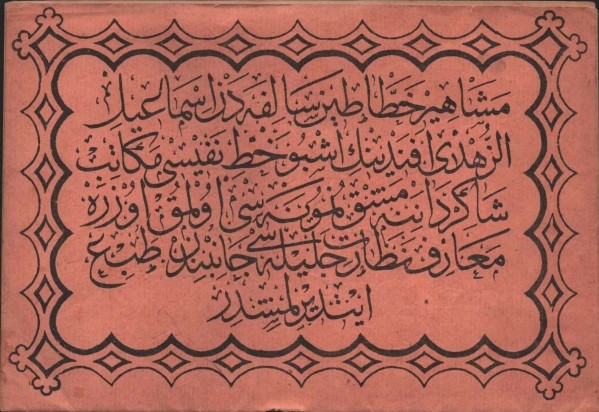 مشاهير خطاطين سالفه‌دن اسماعيل
الزهدى افندينك اشبو خط نفيسى مكاتب
شاكرداننه مشق نمونه‌سى اولمق اوزره
معارف نظارت جليله‌سى جانبندن طبع
ايتديرلمشدر